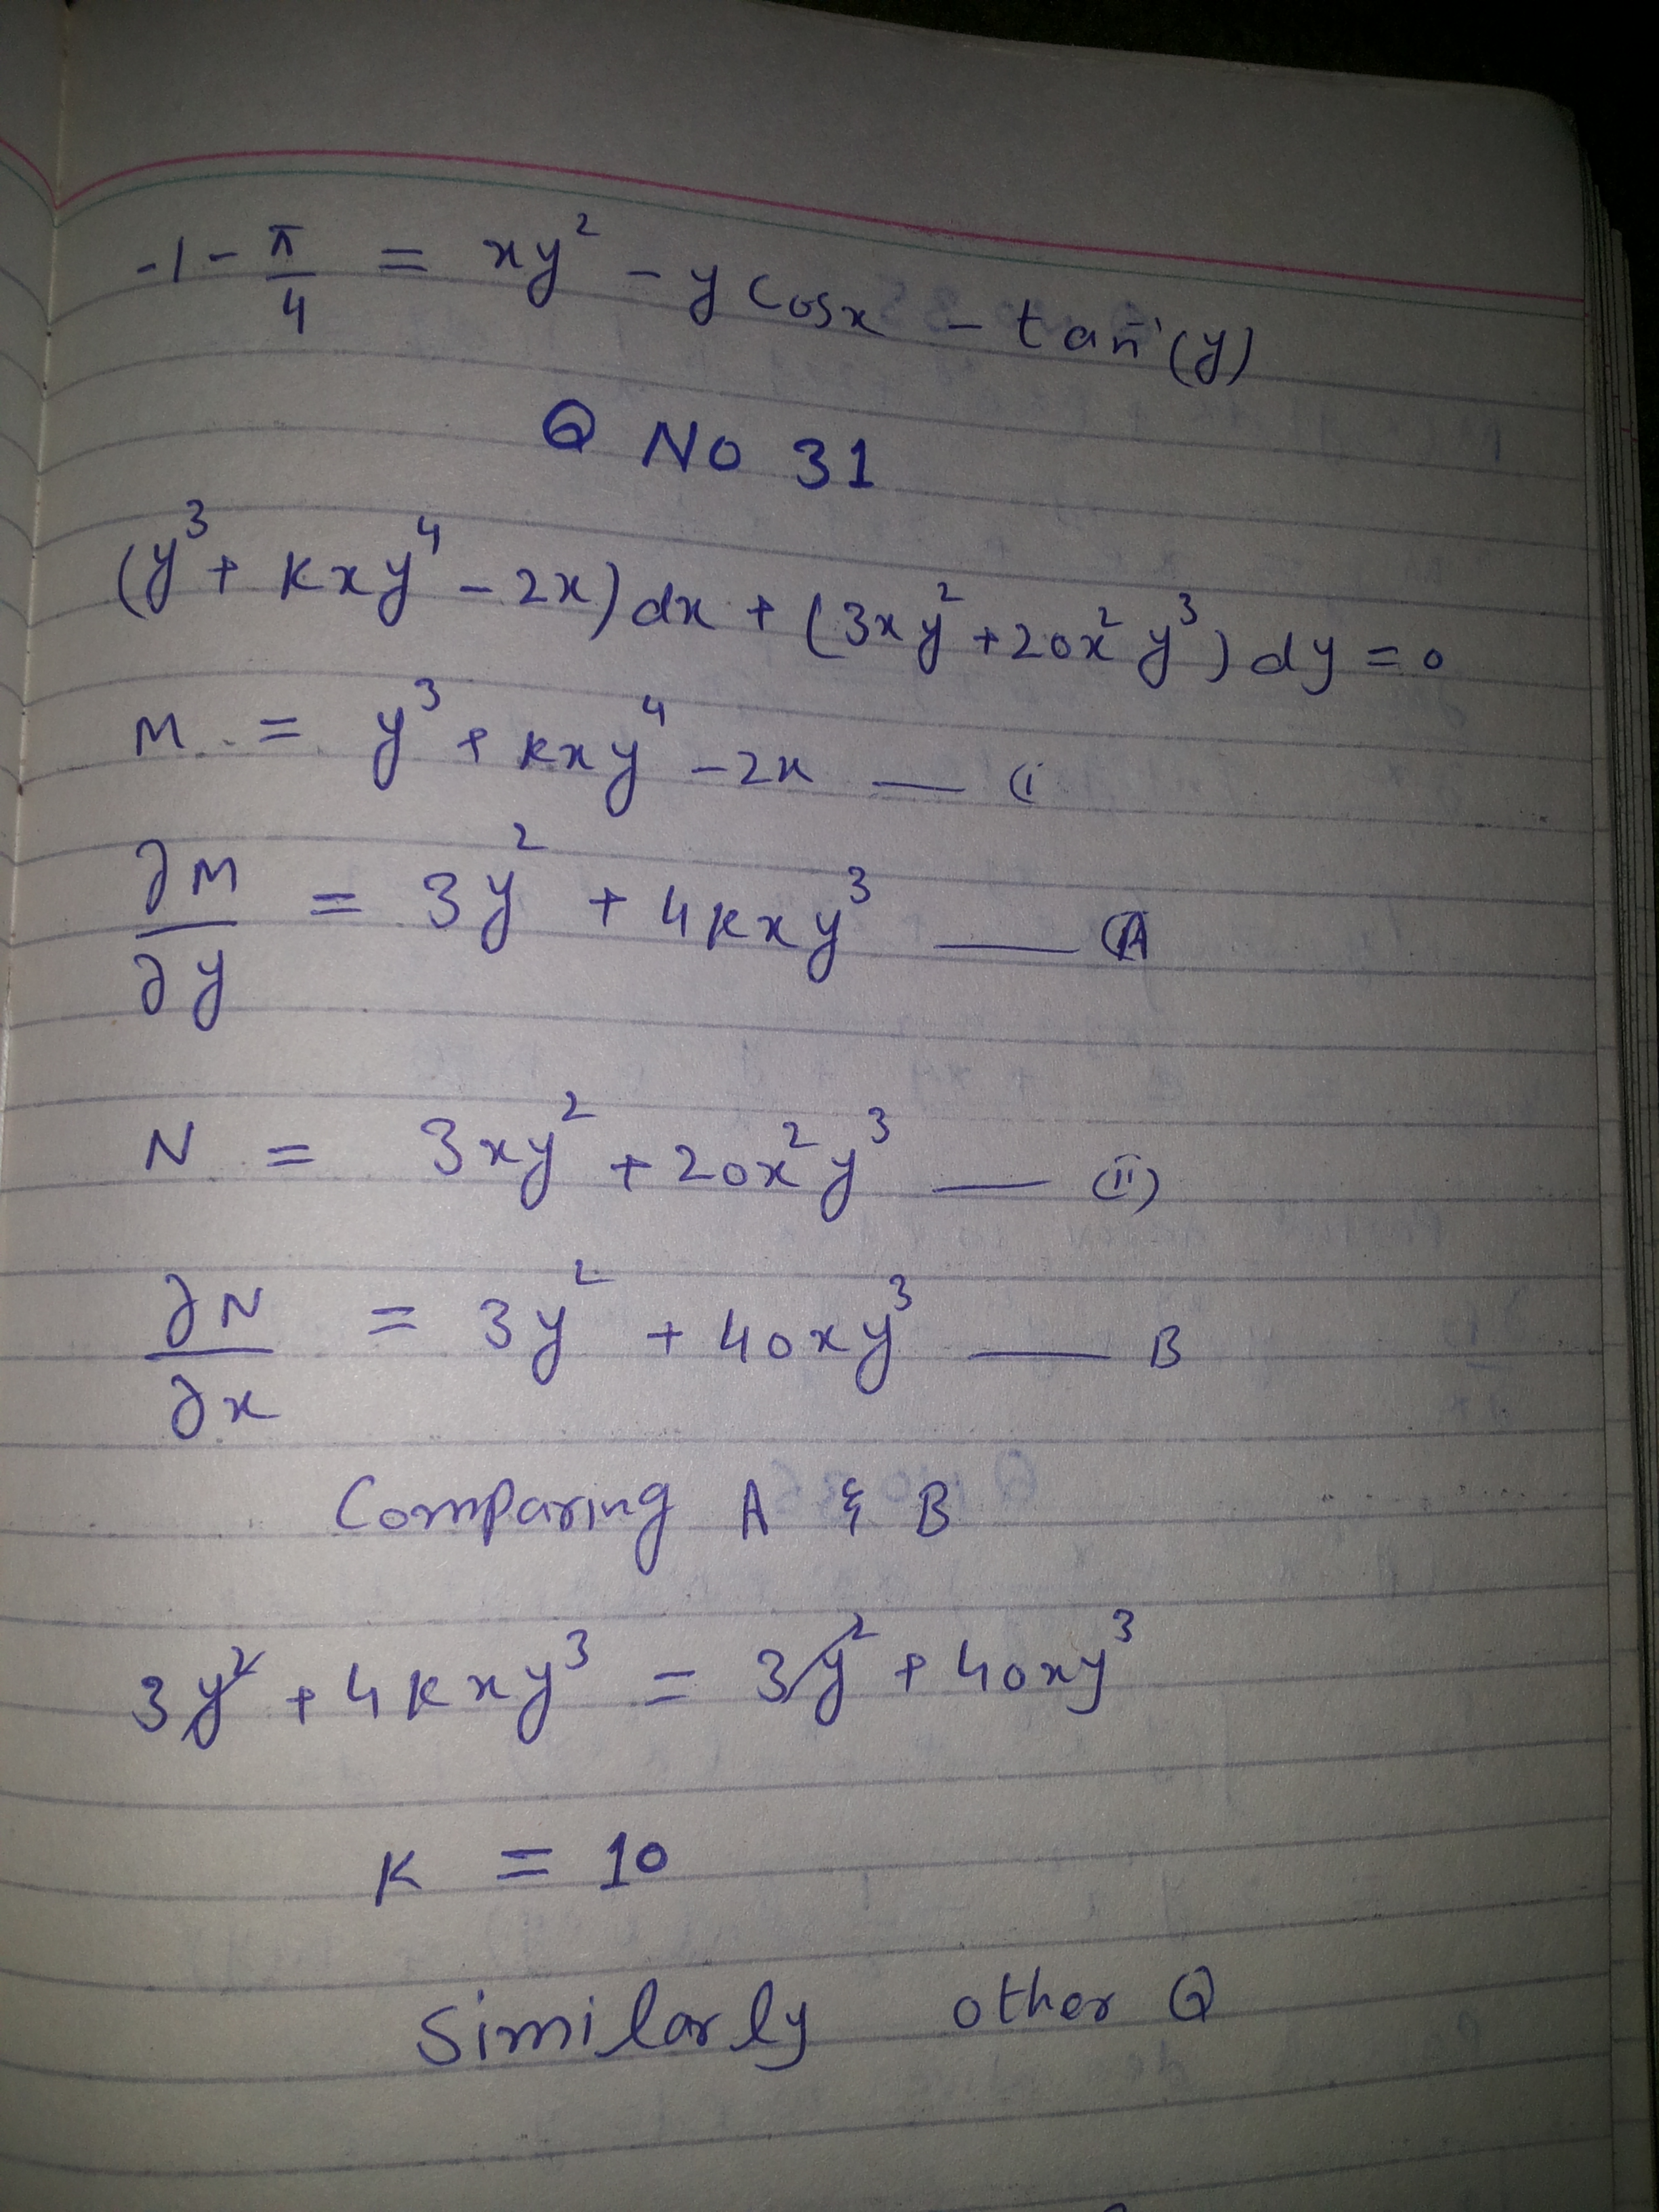 -1 - π/4 = xy² - y Cosx - tan⁻¹(y)
Q No 31
(y³ + kxy⁴ - 2x) dx + (3xy² + 20x²y³) dy = 0
M = y³ + kxy⁴ - 2x — (i
∂M/∂y = 3y² + 4kxy³ — (A
N = 3xy² + 20x²y³ — (ii)
∂N/∂x = 3y² + 40xy³ — B
Comparing A & B
3y² + 4kxy³ = 3y² + 40xy³
K = 10
Similarly other Q